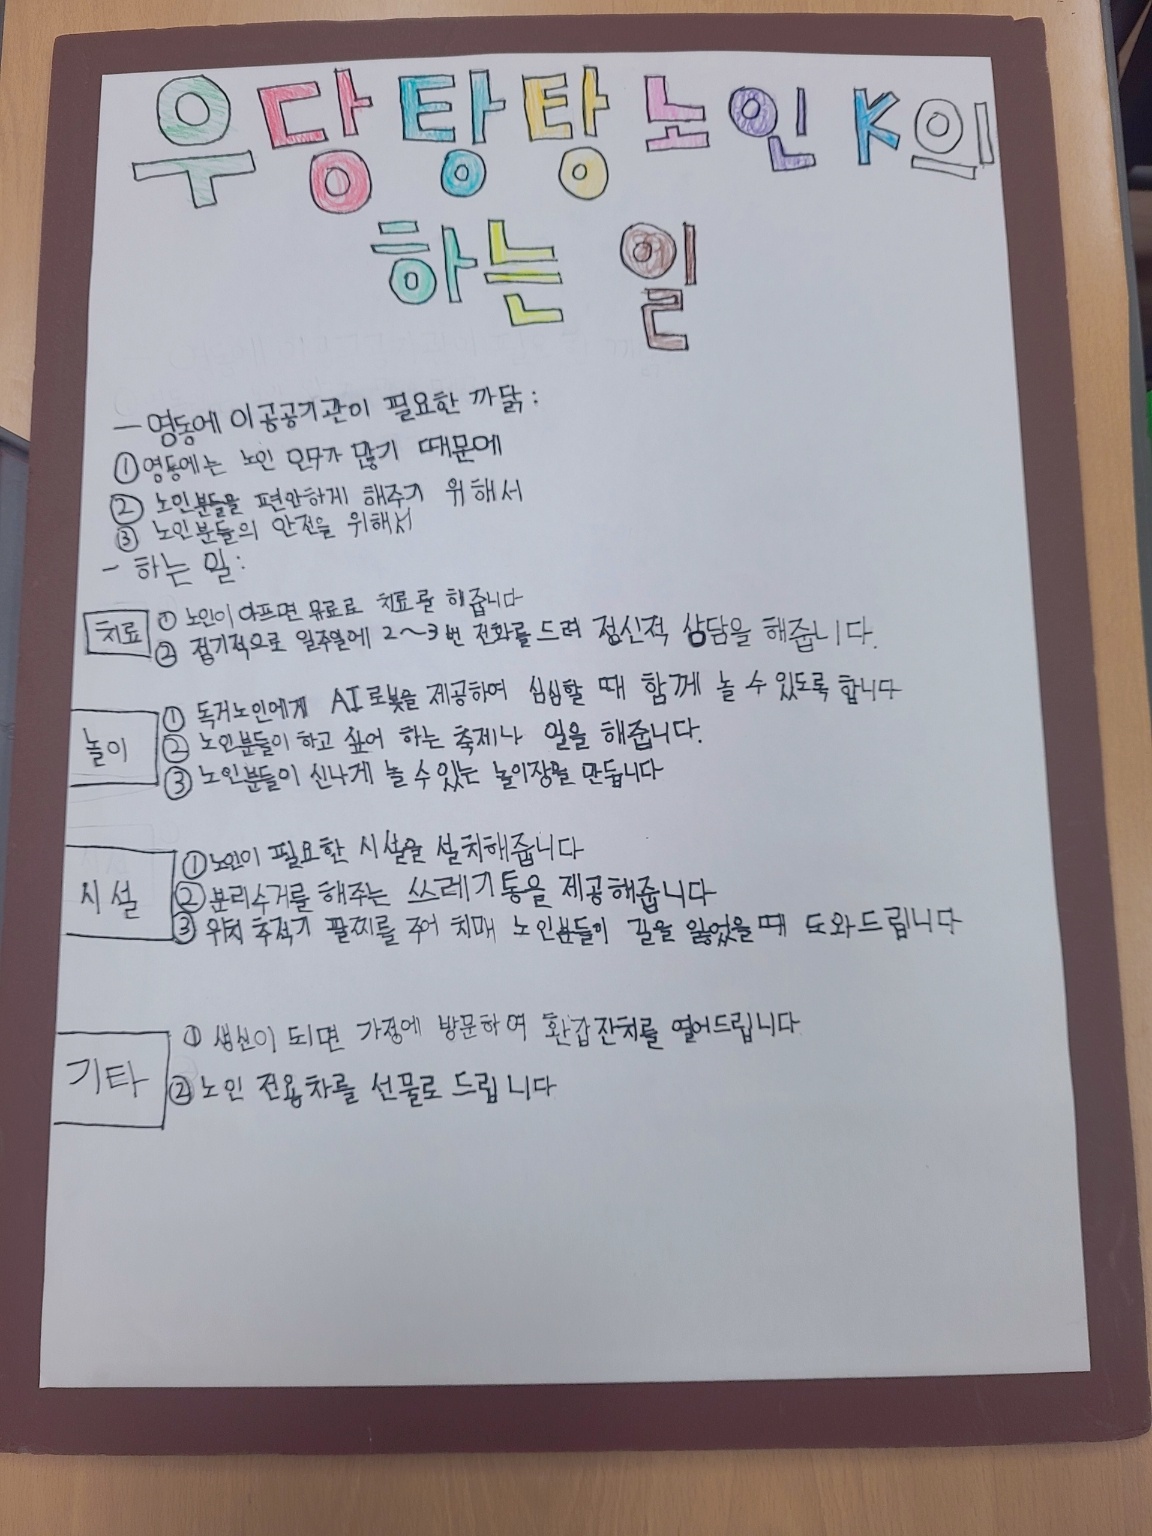 우당탕탕 노인 K의
하는 일
- 영동에 이 공공기관이 필요한 까닭:
① 영동에는 노인 인구가 많기 때문에
② 노인분들을 편안하게 해주기 위해서
③ 노인분들의 안전을 위해서
- 하는 일:
치료 ① 노인이 아프면 무료로 치료를 해줍니다
② 정기적으로 일주일에 2~3번 전화를 드려 정신적 상담을 해줍니다.
놀이 ① 독거노인에게 AI로봇을 제공하여 심심할 때 함께 놀 수 있도록 합니다
② 노인분들이 하고 싶어 하는 축제나 일을 해줍니다.
③ 노인분들이 신나게 놀 수 있는 놀이장을 만듭니다
시설 ① 노인이 필요한 시설을 설치해줍니다
② 분리수거를 해주는 쓰레기통을 제공해줍니다
③ 위치 추적기 팔찌를 주어 치매 노인분들이 길을 잃었을 때 도와드립니다
기타 ① 생신이 되면 가정에 방문하여 환갑잔치를 열어드립니다
② 노인 전용차를 선물로 드립니다